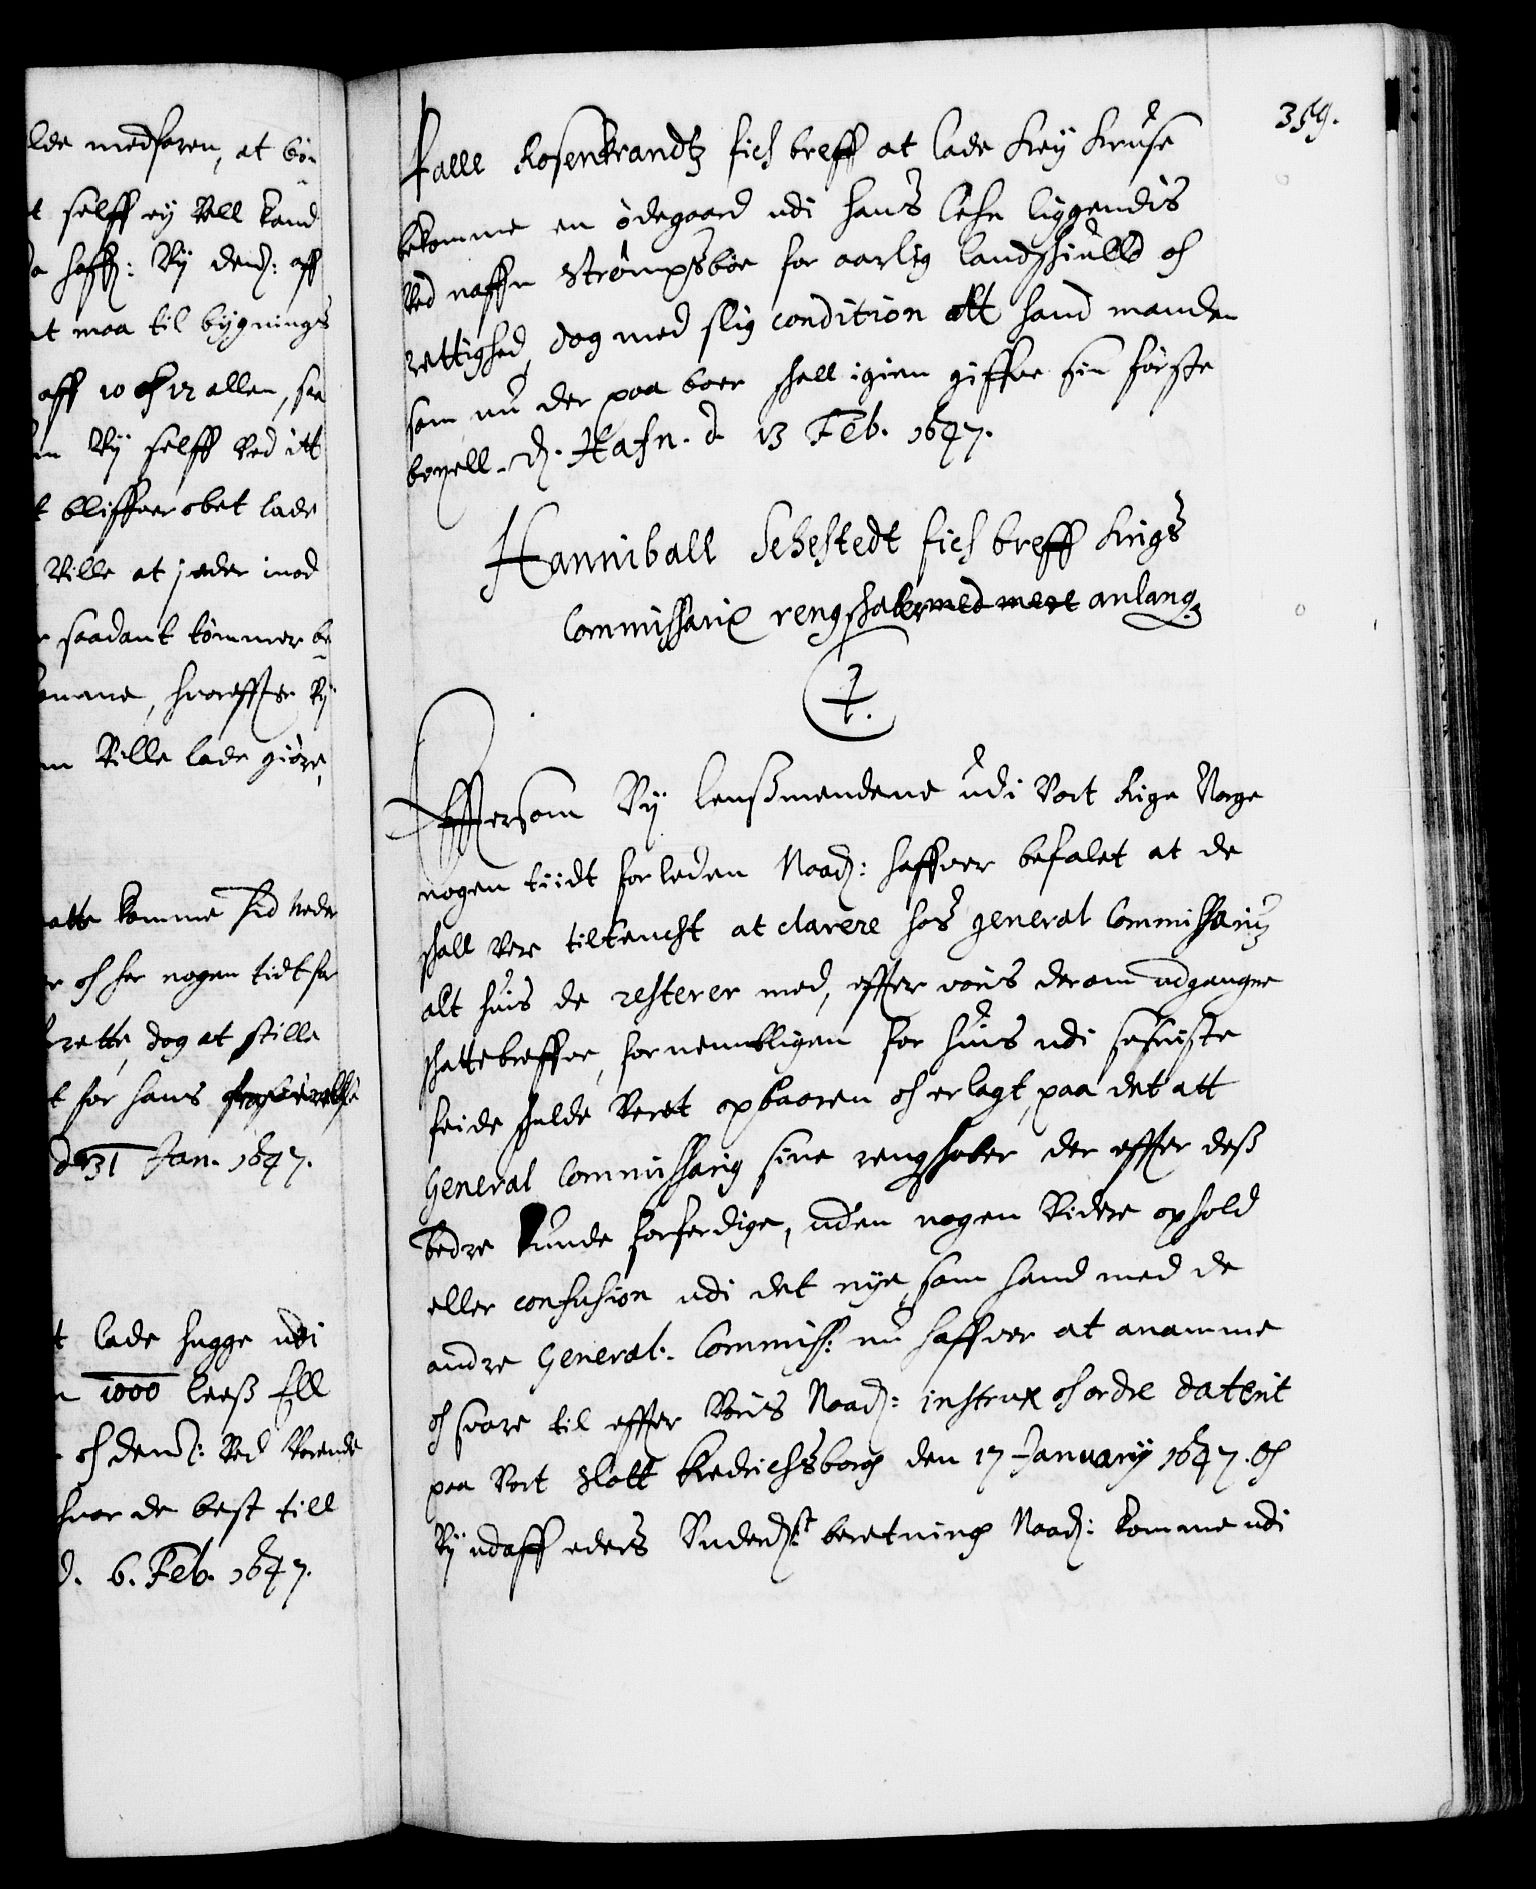 lde medfaren, at bø-
t selff ey Vell kand
a haffr: Vy dend: aff
at maa til bygnings
aff 10 och 12 allen, saa
Vy selff Ved itt
t bliffver obet lade
Ville at j eder imod
r saadant tømmer be
komme, hvoreffter Vy
Ville lade giøre,
atte komme hid Neder
r och her nogen tidt for
rette, dog at stille
t for hans
d. 31 Jan. 1647.
t lade hugge udi
n 1000 leeß Ell
och dend: Ved Verende
hvor de best till
d. 6. Feb. 1647.
359.
Palle Rosenkrandtz fich breff at lade Key Kruse
bekomme en ødegaard udi hans Lehn liggendis
Ved naffn Strømpsbøe for aarlig landschiulld och
rettighed, dog med slig condition att hand manden
som nu der paa boer schall igien giffve sin første
boxell. Hafn. d. 13 Feb. 1647.
Hanniball Sehestedt fich breff Krigs
Commissarix rengschaber med mere anlang.
Efftersom Vy lenßmendene udi Vort Rige Norge
nogen tiidt forleden Naadr: haffver befalet at de
schall Vere tiltencht at clarere hos general Commissariu
alt huis de resterer med, effter voris derom udgangne
schattebreffve, fornembligen for huis udi sehniste
feide schulde Veret opbaaren och erlagt, paa det att
General Commissarig sine rengschaber der effter deß
bedre kunde forferdige, uden nogen Videre ophold
eller confusion udi det nye, som hand med de
andre General: Commiss: nu haffver at anamme
och svare til effter Voris Naadr: instrux och ordre daterit
paa Vort Slott Fredrichsborg den 17 January 1647. Och
Vy udaff eders Underdst: beretning Naadr: komme udi